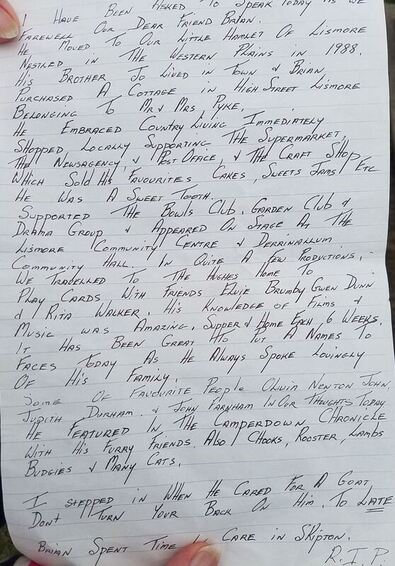 I Have Been Asked To Speak Today As We
Farewell Our Dear Friend Brian.
He Moved To Our Little Hamlet Of Lismore
Nestled in The Western Plains in 1988.
His Brother Jo Lived in Town & Brian
Purchased A Cottage in High Street Lismore
Belonging To Mr & Mrs Pyke.
He Embraced Country Living Immediately
Shopped Locally Supporting The Supermarket,
The Newsagency & Post Office, & The Craft Shop
Which Sold His Favourites Cakes, Sweets Jams Etc
He Was A Sweet Tooth.
Supported The Bowls Club, Garden Club &
Drama Group & Appeared On Stage At The
Lismore Community Centre & Derrinallum
Community Hall. In Quite A Few Productions,
We Travelled To The Hughes Home To
Play Cards With Friends Elvie Brumby Gwen Dunn
& Rita Walker His Knowledge of Films &
Music was Amazing, Supper & Home Each 6 Weeks.
It Has Been Great To Put A Names To
Faces Today As He Always Spoke Lovingly
Of His Family.
Some of Favourite People Olivia Newton John,
Judith Durham & John Farnham In Our Thoughts Today
He Featured In The Camperdown Chronicle
With His Furry Friends. Also Chooks, Rooster, Lambs
Budgies & Many Cats.
I Stepped in When He Cared For A Goat
Don't Turn Your Back On Him. To Late
Brian Spent Time In Care in Skipton.
R.I.P.